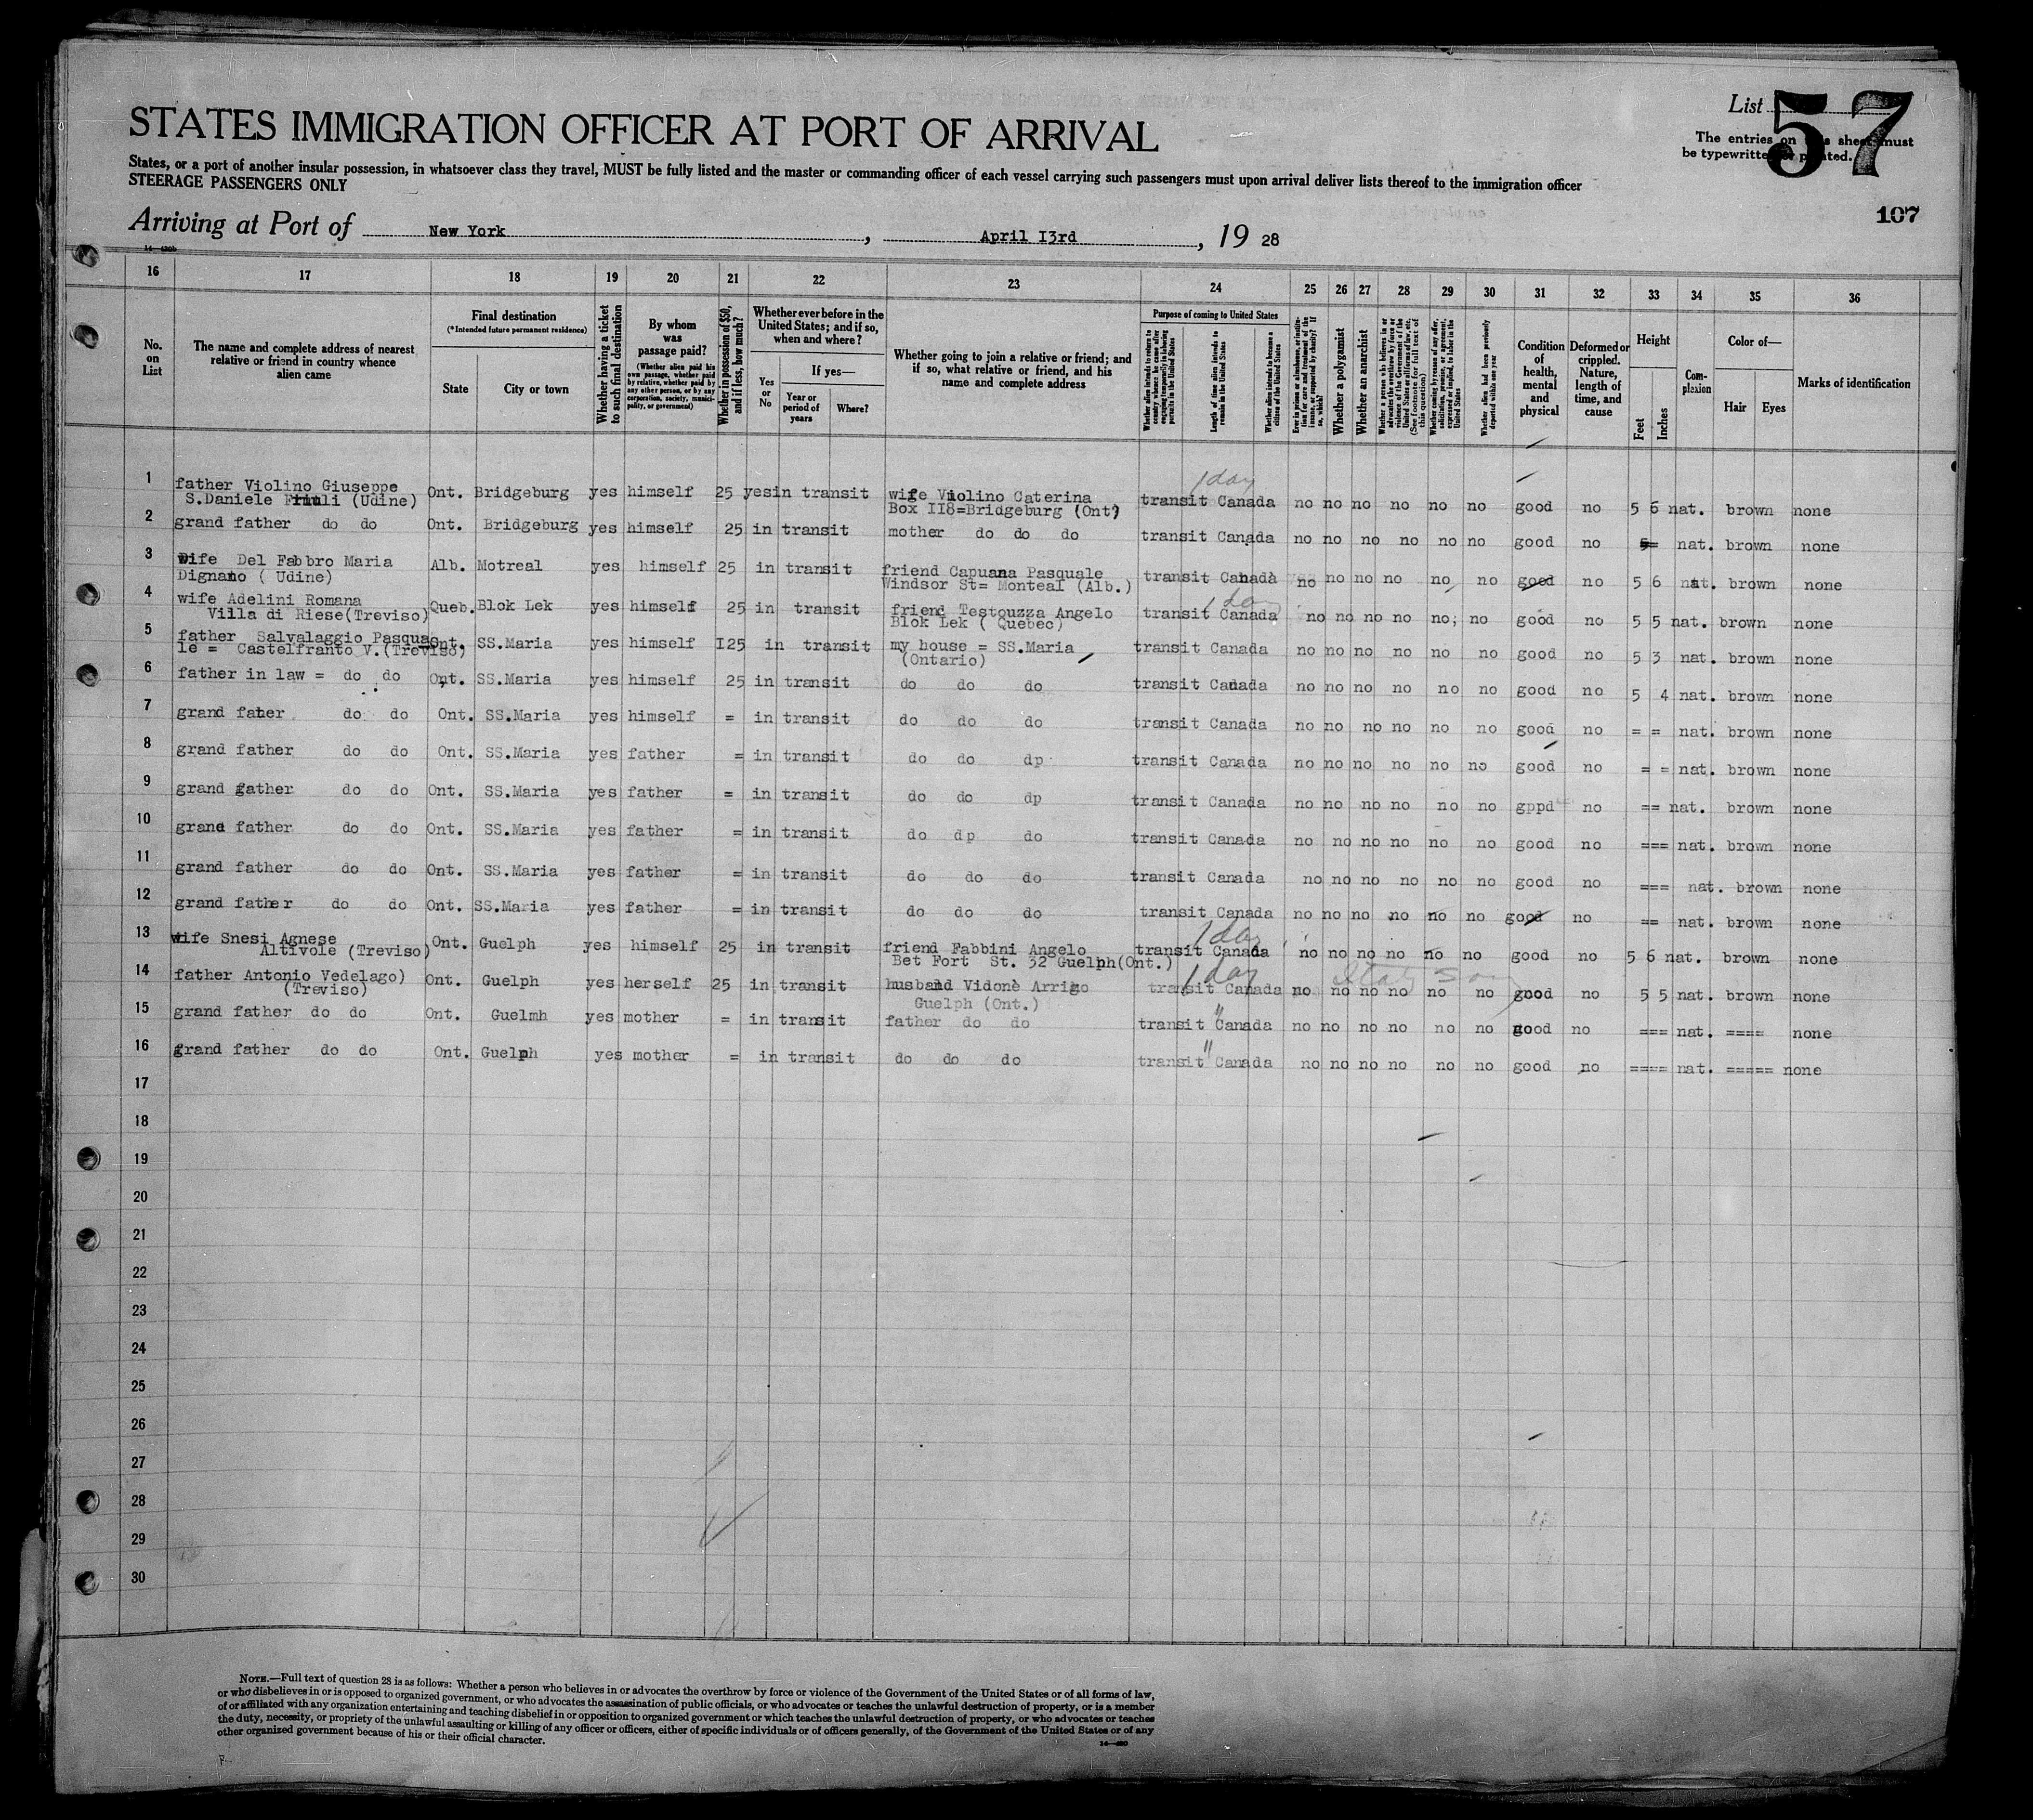 List 57
STATES IMMIGRATION OFFICER AT PORT OF ARRIVAL
The entries on this sheet must
be typewritten or printed.
States, or a port of another insular possession, in whatsoever class they travel, MUST be fully listed and the master or commanding officer of each vessel carrying such passengers must upon arrival deliver lists thereof to the immigration officer
STEERAGE PASSENGERS ONLY
107
Arriving at Port of New York, April I3rd, 19 28
16 17 18 19 20 21 22 23 24 25 26 27 28 29 30 31 32 33 34 35 36
No. on List
The name and complete address of nearest relative or friend in country whence alien came
Final destination
(*Intended future permanent residence)
State
City or town
Whether having a ticket to such final destination
By whom was passage paid?
(Whether alien paid his own passage, whether paid by relative, whether paid by any other person, or by any corporation, society, municipality, or government)
Whether in possession of $50, and if less, how much?
Whether ever before in the United States; and if so, when and where?
Yes or No
If yes—
Year or period of years
Where?
Whether going to join a relative or friend; and if so, what relative or friend, and his name and complete address
Purpose of coming to United States
Whether alien intends to return to country whence he came after engaging temporarily in laboring pursuits in the United States
Length of time alien intends to remain in the United States
Whether alien intends to become a citizen of the United States
Ever in prison or almshouse, or institution for care and treatment of the insane, or supported by charity? If so, which?
Whether a polygamist
Whether an anarchist
Whether a person who believes in or advocates the overthrow by force or violence of the Government of the United States or all forms of law, etc. (See footnote for full text of this question)
Whether coming by reason of any offer, solicitation, promise, or agreement, expressed or implied, to labor in the United States
Whether alien had been previously deported within one year
Condition of health, mental and physical
Deformed or crippled. Nature, length of time, and cause
Height
Feet
Inches
Com-plexion
Color of—
Hair
Eyes
Marks of identification
1 day
1 father Violino Giuseppe Ont. Bridgeburg yes himself 25 yes in transit wife Violino Caterina transit Canada no no no no no no good no 5 6 nat. brown none
S.Daniele Friuli (Udine) Box II8=Bridgeburg (Ont)
2 grand father do do Ont. Bridgeburg yes himself 25 in transit mother do do do transit Canada no no no no no no good no nat. brown none
3 wife Del Fabbro Maria Alb. Motreal yes himself 25 in transit friend Capuana Pasquale transit Canada no no no no no no good no 5 6 nat. brown none
Dignano ( Udine) Windsor St= Monteal (Alb.)
1 day
4 wife Adelini Romana Queb. Blok Lek yes himself 25 in transit friend Testouzza Angelo transit Canada no no no no no; no good no 5 5 nat. brown none
Villa di Riese(Treviso) Blok Lek ( Quebec)
5 father Salvalaggio Pasqua Ont. SS.Maria yes himself I25 in transit my house = SS.Maria transit Canada no no no no no no good no 5 3 nat. brown none
le = Castelfranto V.(Treviso) (Ontario)
6 father in law = do do Ont. SS.Maria yes himself 25 in transit do do do transit Canada no no no no no no good no 5 4 nat. brown none
7 grand father do do Ont. SS.Maria yes himself = in transit do do do transit Canada no no no no no no good no = = nat. brown none
8 grand father do do Ont. SS.Maria yes father = in transit do do dp transit Canada no no no no no no good no = = nat. brown none
9 grand father do do Ont. SS.Maria yes father = in transit do do dp transit Canada no no no no no no gppd no == nat. brown none
10 grand father do do Ont. SS.Maria yes father = in transit do dp do transit Canada no no no no no no good no === nat. brown none
11 grand father do do Ont. SS.Maria yes father = in transit do do do transit Canada no no no no no no good no === nat. brown none
12 grand father do do Ont. SS.Maria yes father = in transit do do do transit Canada no no no no no no good no == nat. brown none
1 day
13 wife Snesi Agnese Ont. Guelph yes himself 25 in transit friend Fabbini Angelo transit Canada no no no no no no good no 5 6 nat. brown none
Altivole (Treviso) Bet Fort St. 32 Guelph(Ont.)
1 day
14 father Antonio Vedelago) Ont. Guelph yes herself 25 in transit husband Vidonè Arrigo transit Canada no no no no no no good no 5 5 nat. brown none
(Treviso) Guelph (Ont.)
15 grand father do do Ont. Guelmh yes mother = in transit father do do transit " Canada no no no no no no good no === nat. ==== none
16 grand father do do Ont. Guelph yes mother = in transit do do do transit " Canada no no no no no no good no ==== nat. ===== none
17
18
19
20
21
22
23
24
25
26
27
28
29
30
NOTE.—Full text of question 28 is as follows: Whether a person who believes in or advocates the overthrow by force or violence of the Government of the United States or of all forms of law,
or who disbelieves in or is opposed to organized government, or who advocates the assassination of public officials, or who advocates or teaches the unlawful destruction of property, or is a member
of or affiliated with any organization entertaining and teaching disbelief in or opposition to organized government or which teaches the unlawful destruction of property, or who advocates or teaches
the duty, necessity, or propriety of the unlawful assaulting or killing of any officer or officers, either of specific individuals or of officers generally, of the Government of the United States or of any
other organized government because of his or their official character.